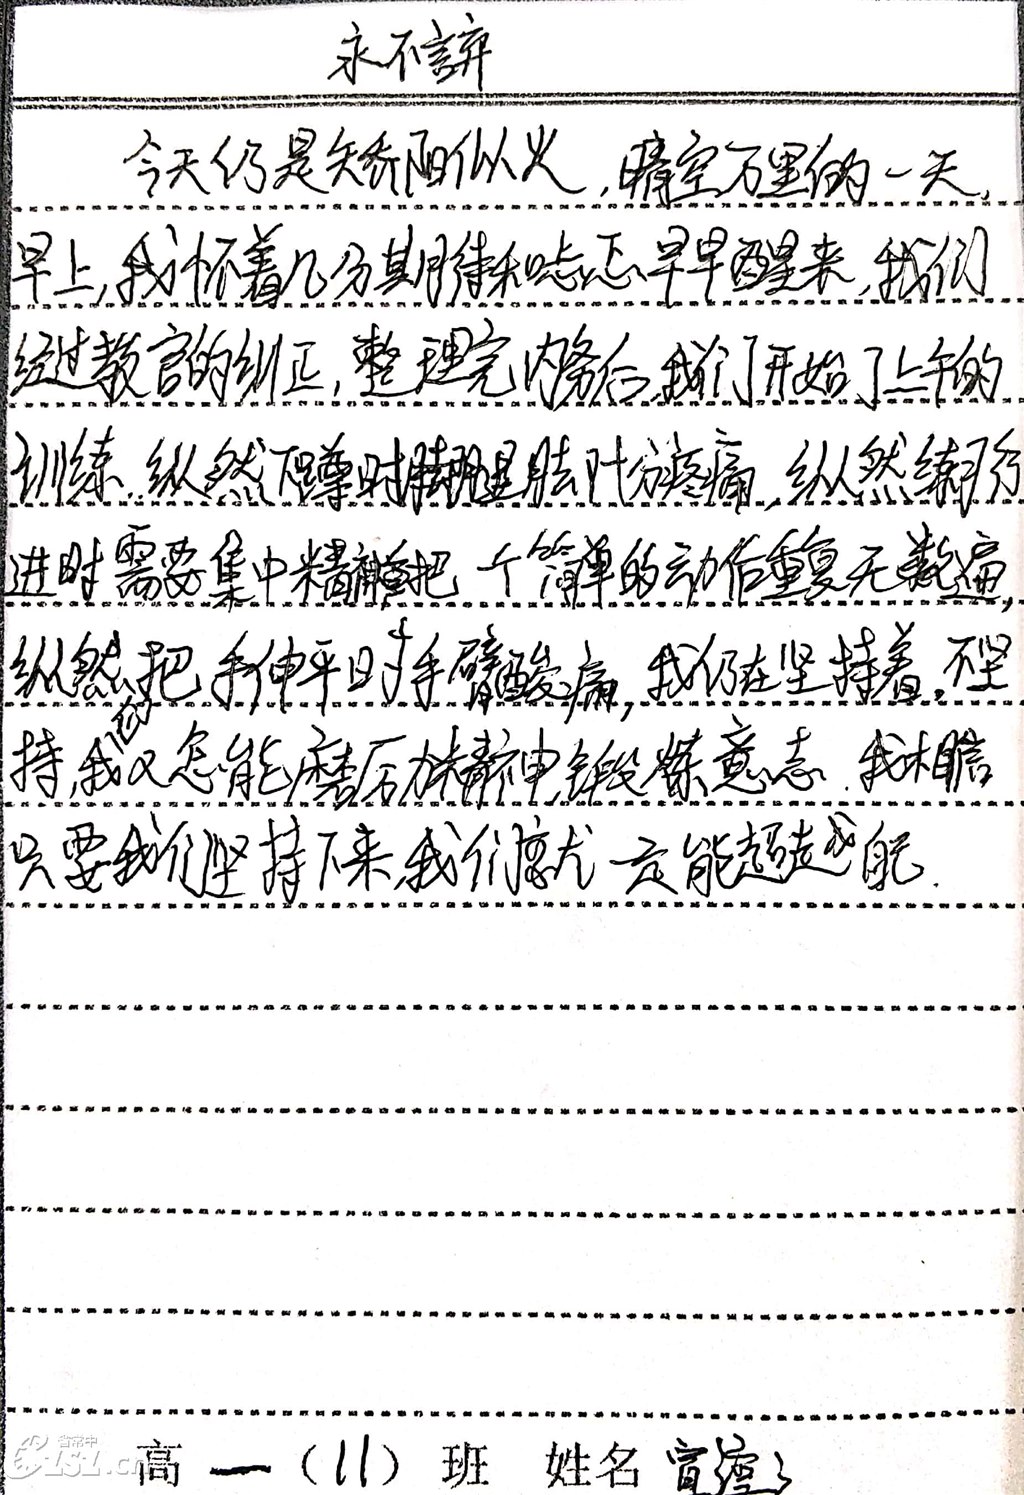 永不言弃
今天仍是矢骄阳似火,晴空万里的一天,
早上,我怀着几分期待和忐忑早早醒来,我们
经过教官的纠正,整理完内务后,我们开始了上午的
训练.纵然下蹲时脚腿十分疼痛,纵然练习行
进时需要集中精神把一个简单的动作重复无数遍,
纵然把手伸平时手臂酸痛,我仍在坚持着,不坚
持,我们又怎能磨厉精神,锻炼意志.我相信
只要我们坚持下来,我们就一定能超越自己.
省常中
CZSZ.cn
高一(11)班 姓名 宣